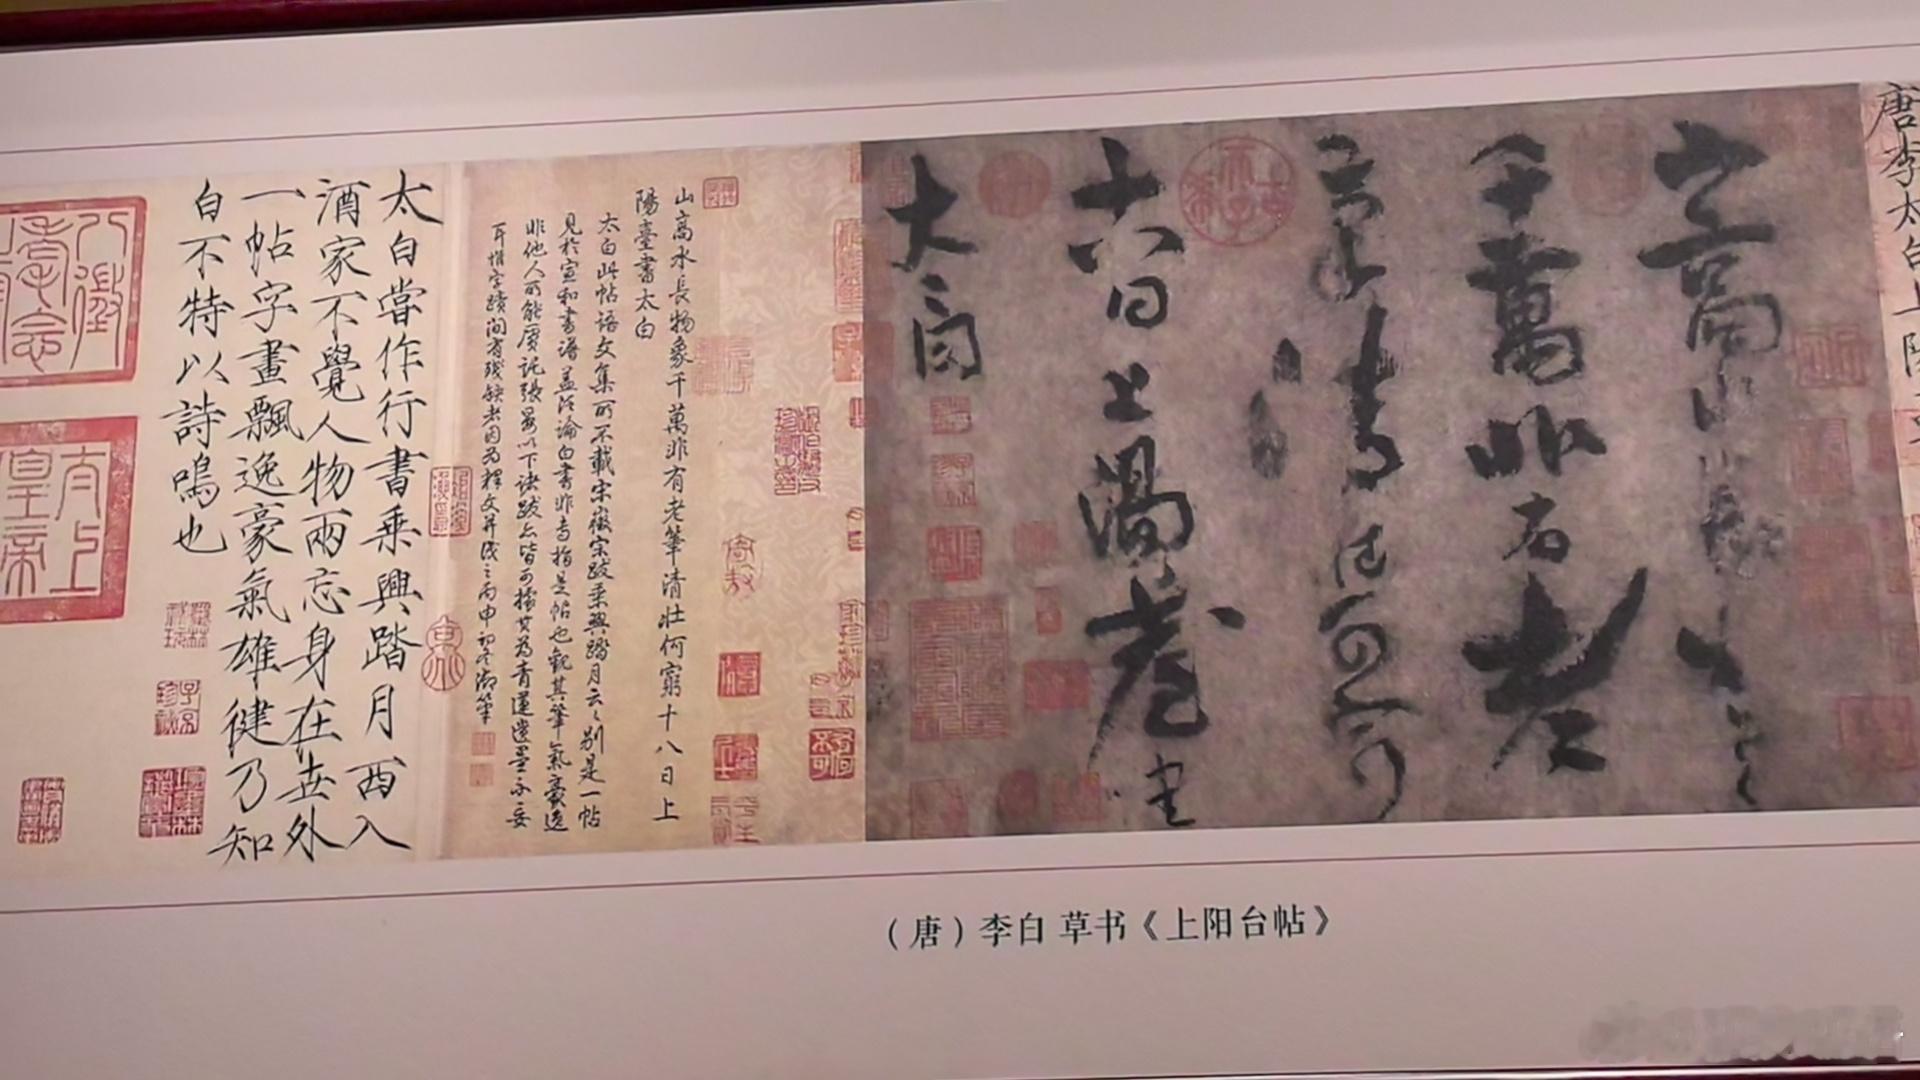 唐李太白上陽
山高水長物象
千萬非有老
筆清壯何窮
十八日上陽臺書
太白
山高水長物象千萬非有老筆清壯何窮十八日上
陽臺書太白
太白此帖語文集所不載宋徽宗跋乘興踏月云々別是一帖
見於宣和書譜蓋泛論白書非專指是帖也觀其筆氣豪逸
非他人所能贗託張晏以下諸跋亦皆可據其為青蓮遺墨不妄
耳惟字蹟間有殘缺者因為釋文并識之丙申初冬御筆
太白嘗作行書乘興踏月西入
酒家不覺人物兩忘身在世外
一帖字畫飄逸豪氣雄健乃知
白不特以詩鳴也
太上皇帝
（唐）李白 草书《上阳台帖》